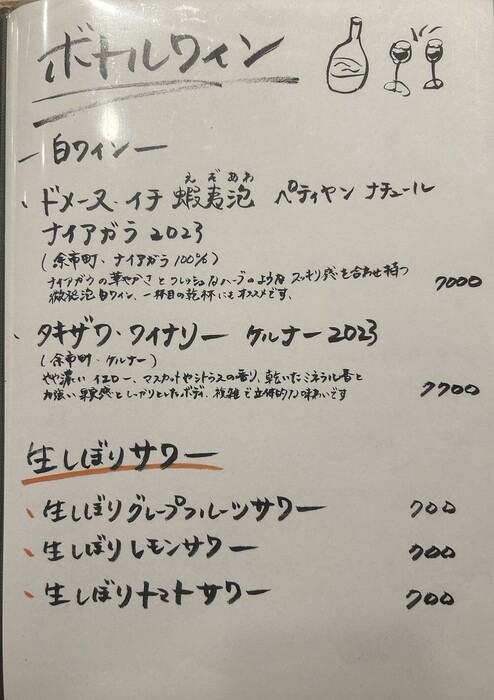 ボトルワイン
白ワイン
えぞあわ
ドメーヌ・イチ 蝦夷泡 ペティヤン ナチュール
ナイアガラ 2023
(余市町・ナイアガラ 100%)
ナイアガラの華やかさとフレッシュなハーブのようなスッキリ感を合わせ持つ
微発泡白ワイン、一杯目の乾杯にもオススメです、
7000
タキザワ・ワイナリー ケルナー 2023
(余市町・ケルナー)
やや濃いイエロー、マスカットやシトラスの香り、乾いたミネラル香と
力強い果実感としっかりとしたボディ、複雑で立体的な味わいです
7700
生しぼりサワー
生しぼりグレープフルーツサワー 700
生しぼりレモンサワー 700
生しぼりトマトサワー 700